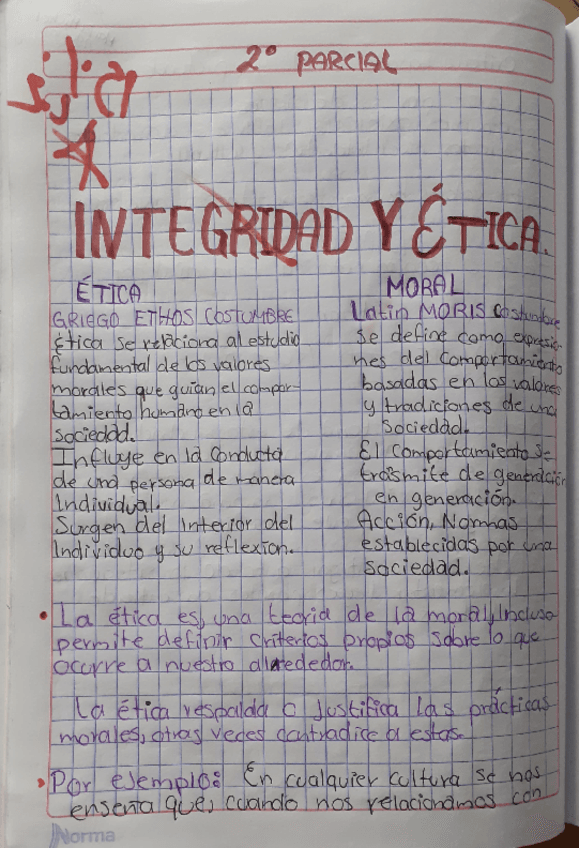 2° PARCIAL
INTEGRIDAD Y ÉTICA.
ÉTICA
GRIEGO ETHOS COSTUMBRE
Ética se relaciona al estudio
fundamental de los valores
morales que guían el compor-
tamiento humano en la
sociedad.
Influye en la conducta
de una persona de manera
Individual.
Surgen del interior del
Individuo y su reflexion.
MORAL
Latin MORIS costumbre
se define como expresio-
nes del comportamiento
basadas en los valores
y tradiciones de una
sociedad.
El comportamiento se
trasmite de generación
en generación.
Acción, Normas
establecidas por una
sociedad.
• La ética es, una teoria de la moral, Incluso
permite definir criterios propios sobre lo que
ocurre a nuestro alrededor.
La ética respalda o justifica las prácticas
morales, otras vedes contradice a estas.
• Por ejemplo: En cualquier cultura se nos
enseña que, cuando nos relacionamos con
Norma